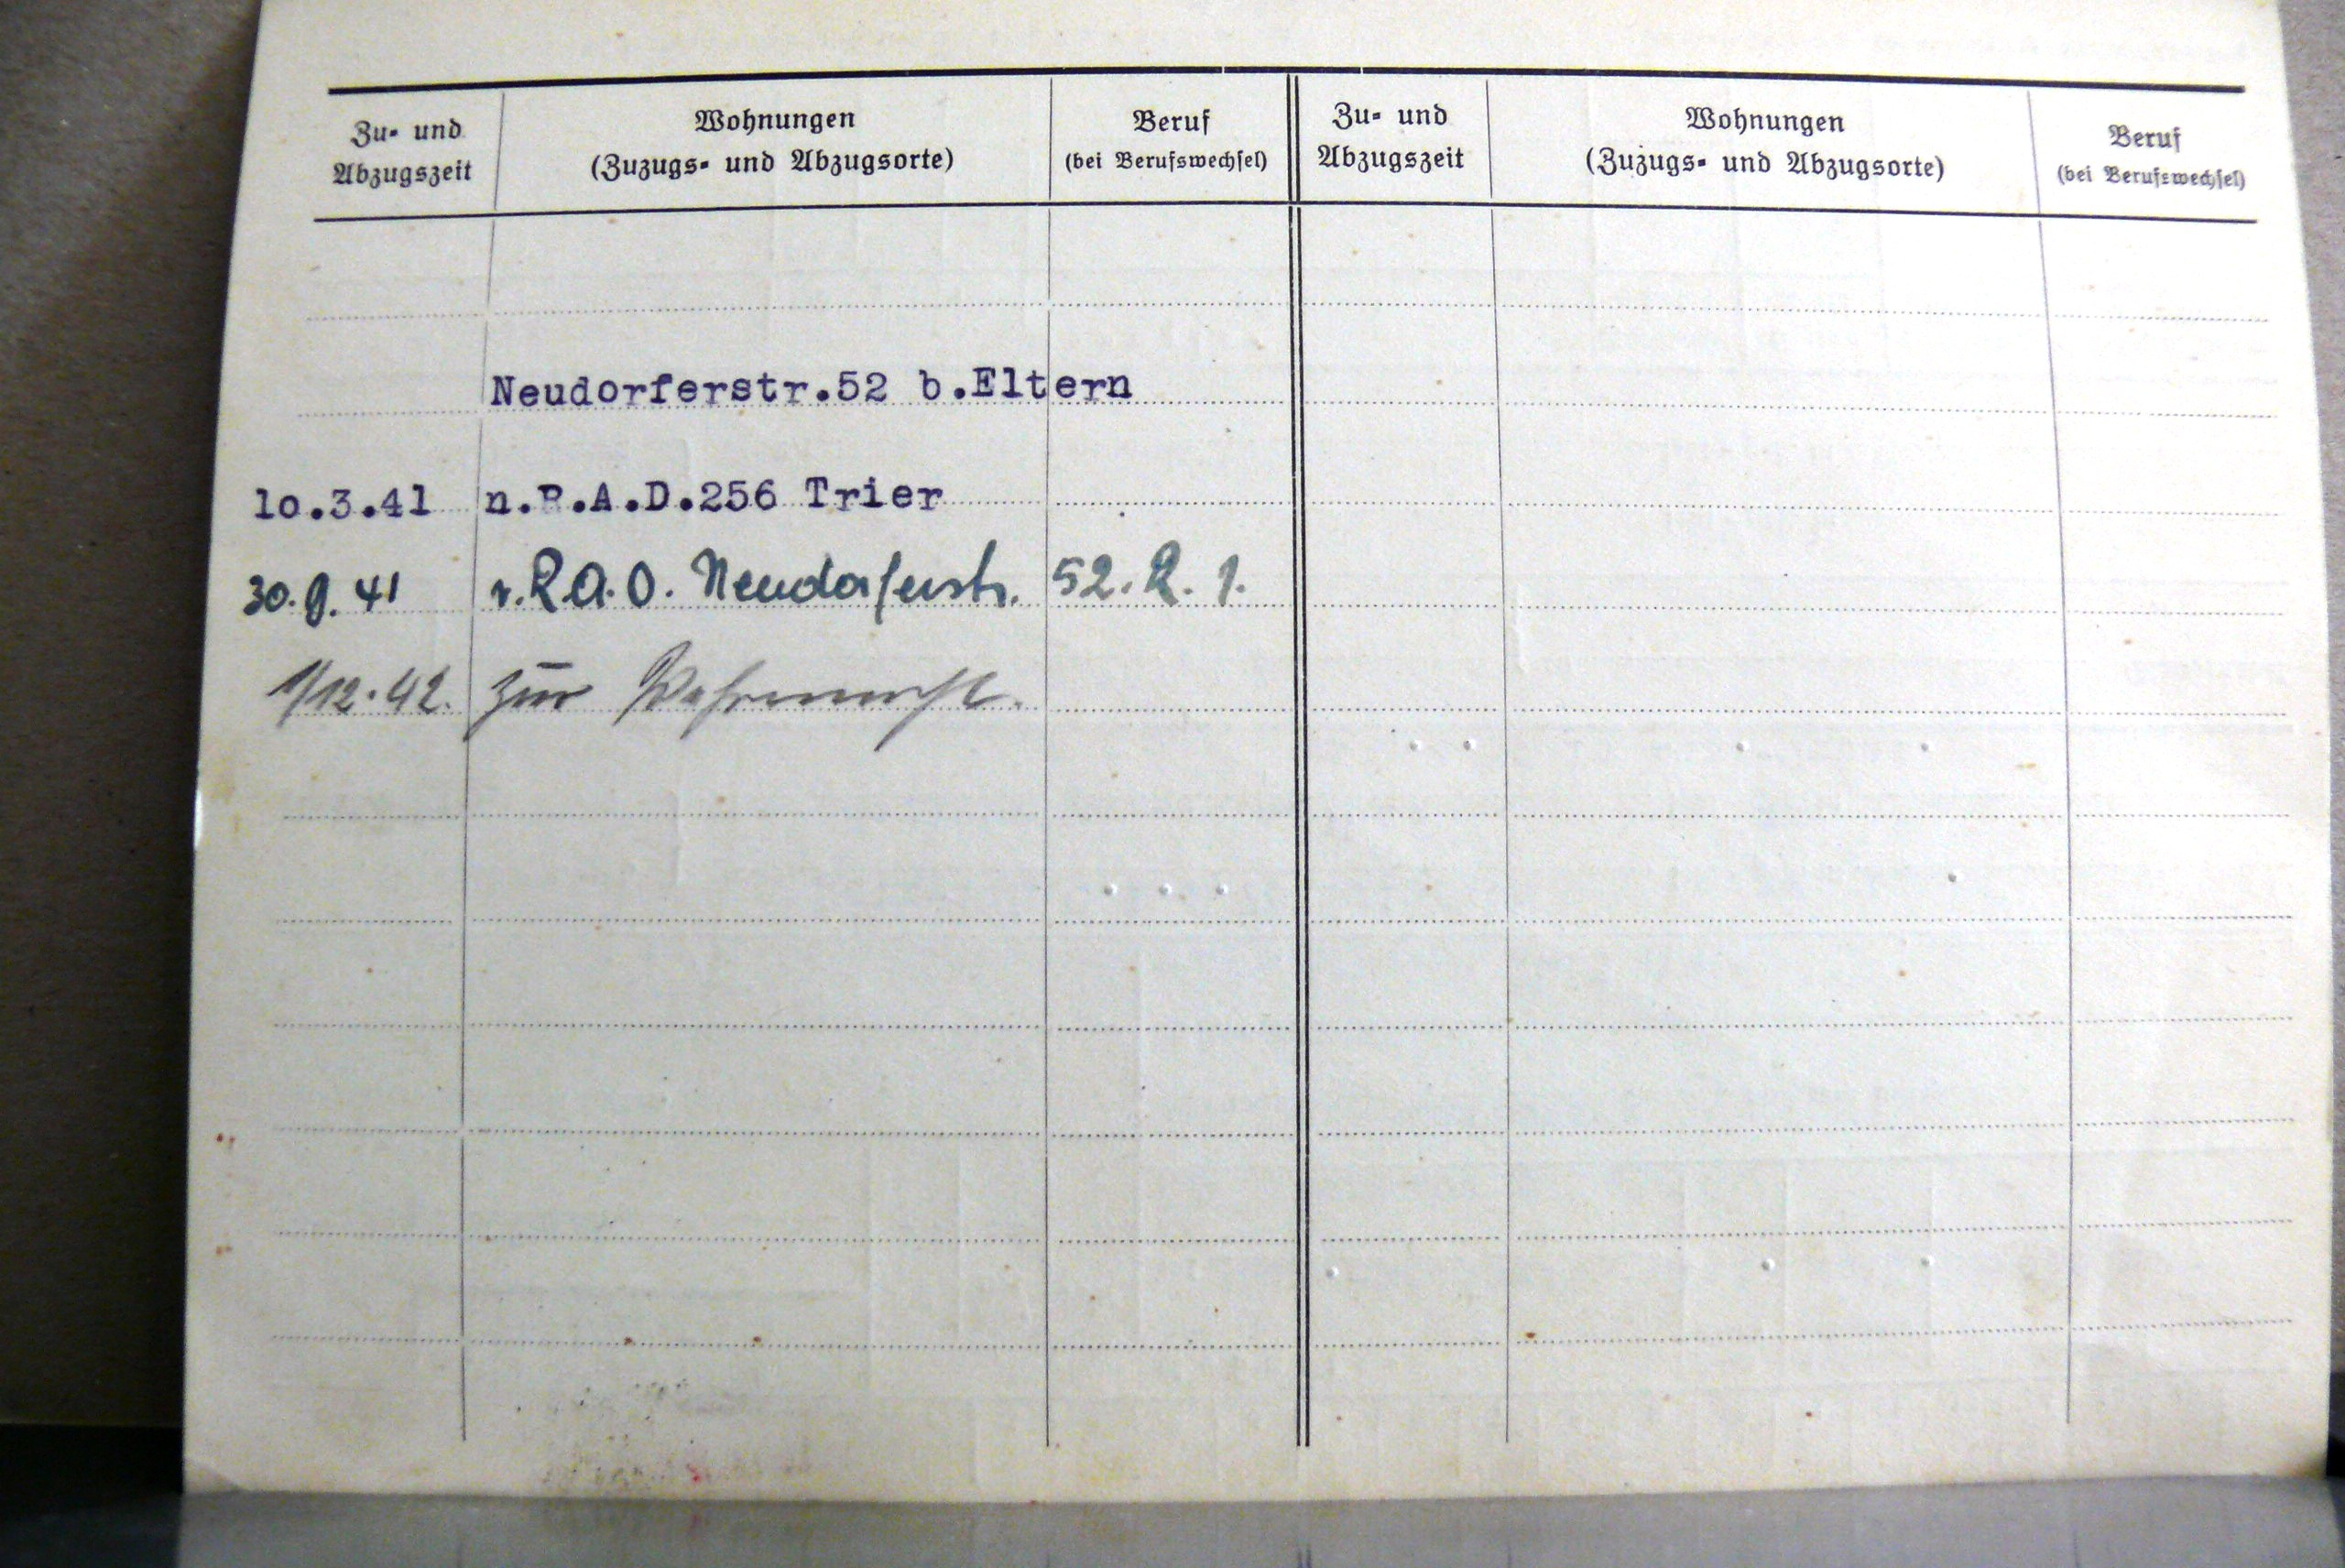 Zu- und Abzugszeit
Wohnungen (Zuzugs- und Abzugsorte)
Beruf (bei Berufswechsel)
Zu- und Abzugszeit
Wohnungen (Zuzugs- und Abzugsorte)
Beruf (bei Berufswechsel)
Neudorferstr.52 b.Eltern
10.3.41 n.R.A.D.256 Trier
30.9.41 v.R.A.D. Neudorferstr. 52. 2. 1.
1/12.42. zur Wehrmacht.